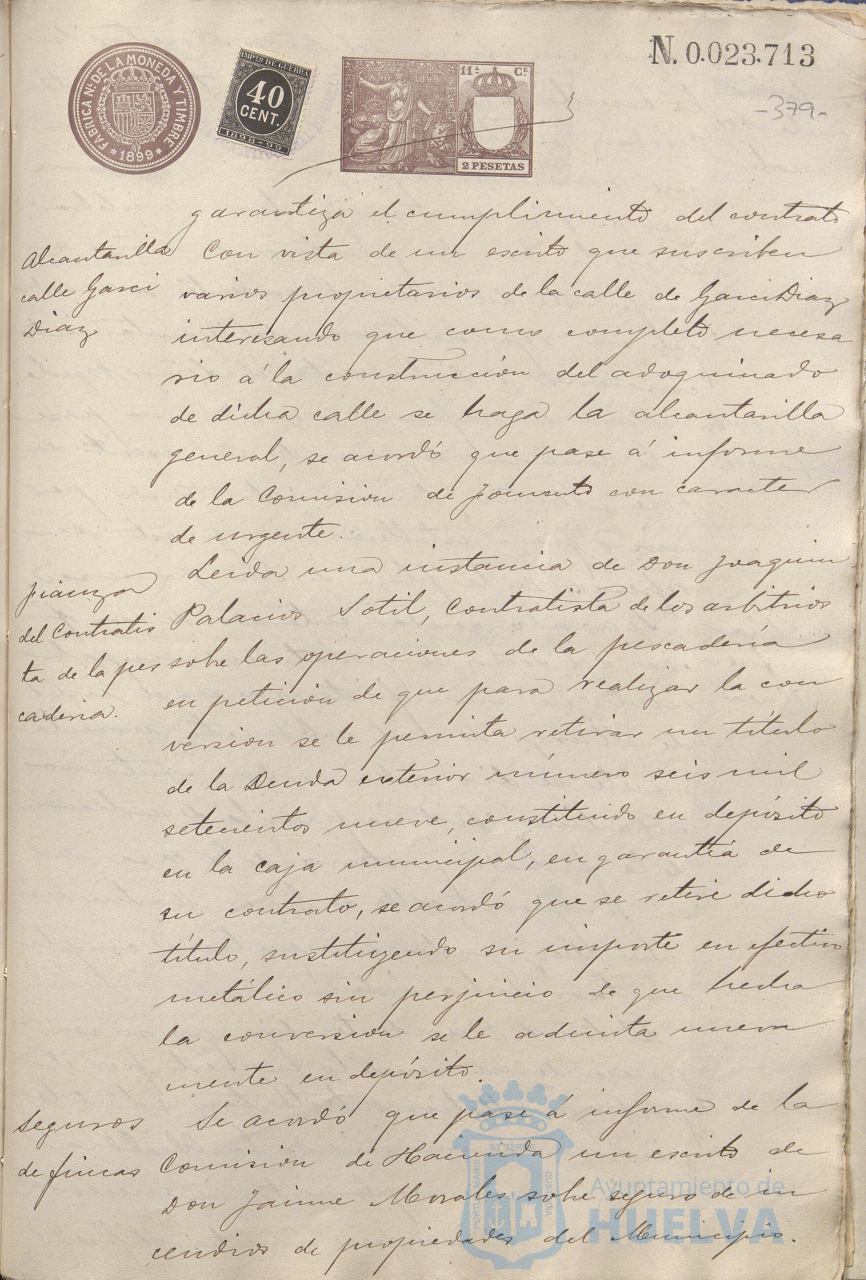 N. 0.023.713
-379-
FABRICA NL. DE LA MONEDA Y TIMBRE
* 1899 *
IMPTO DE GUERRA
40
CENT.
1898-99
AÑO 1899
11ª Cª
2 PESETAS
garantiza el cumplimiento del contrato
Alcantarilla
calle Garci
Diaz
Con vista de un escrito que suscriben
varios propietarios de la calle de Garci Diaz
interesando que como completo necesa
rio á la construccion del adoquinado
de dicha calle se haga la alcantarilla
general, se acordó que pase á informe
de la Comision de Fomento con caracter
de urgente.
Fianza
del Contratis
ta de la pes
caderia.
Leida una instancia de Don Joaquin
Palacios Sotil, Contratista de los arbitrios
sobre las operaciones de la pescadería
en petición de que para realizar la con
version se le permita retirar un título
de la Deuda exterior número seis mil
setecientos nueve, constituido en depósito
en la caja municipal, en garantía de
su contrato, se acordó que se retire dicho
título, sustituyendo su importe en efectivo
metálico sin perjuicio de que hecha
la conversion se le admita nueva
mente en depósito.
Seguros
de fincas
Se acordó que pase á informe de la
Comisión de Hacienda un escrito de
Don Jaime Morales sobre seguro de in
cendios de propiedades del Municipio.
Ayuntamiento de
HUELVA